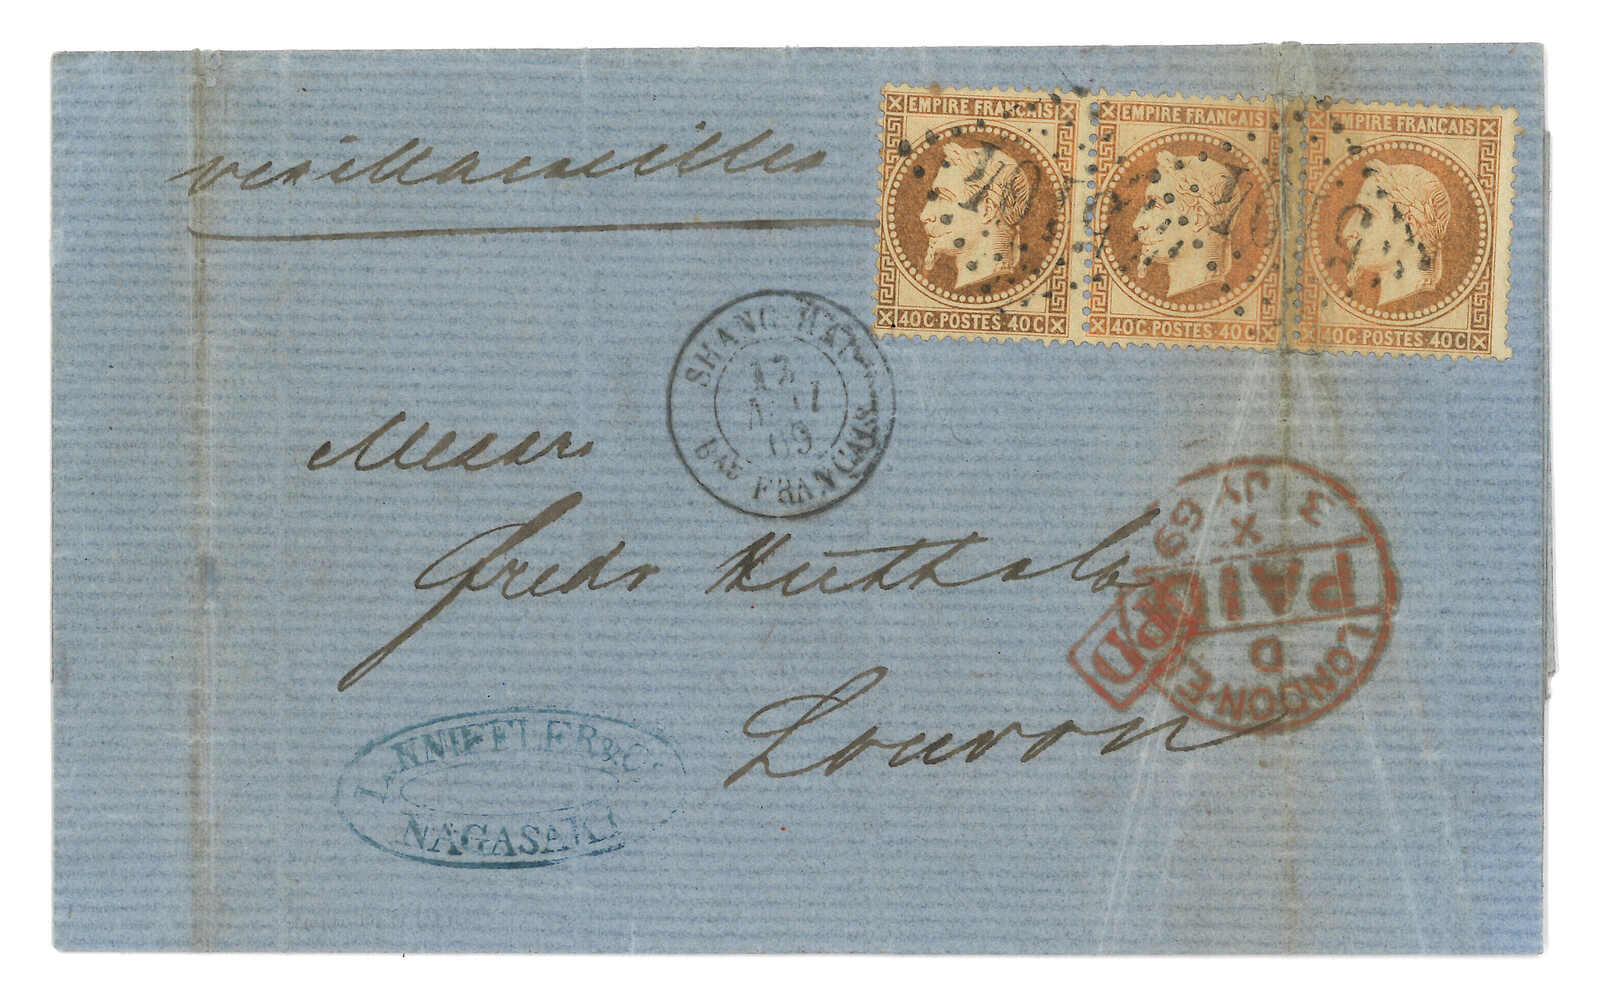 via Marseilles
EMPIRE FRANÇAIS
40C · POSTES · 40C
EMPIRE FRANÇAIS
40C · POSTES · 40C
EMPIRE FRANÇAIS
40C · POSTES · 40C
SHANG-HAI
BAU FRANÇAIS
Messrs
Fredk Huth & Co
London
LONDON-E
PAID
3
X
JY 69
P.D
& Co
NAGASAKI